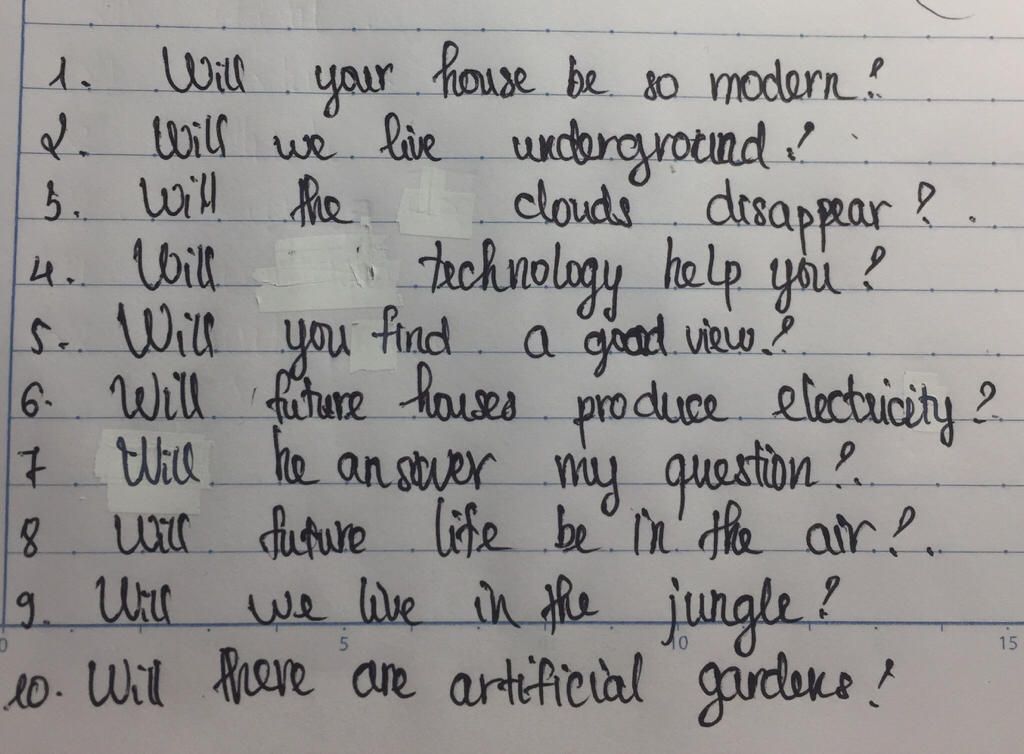 1. Will your house be so modern?
2. Will we live underground?
3. Will the clouds disappear?
4. Will technology help you?
5. Will you find a good view?
6. Will future houses produce electricity?
7 Will he answer my question?
8 Will future life be in the air?
9. Will we live in the jungle?
0 5 10 15
10. Will there are artificial gardens?